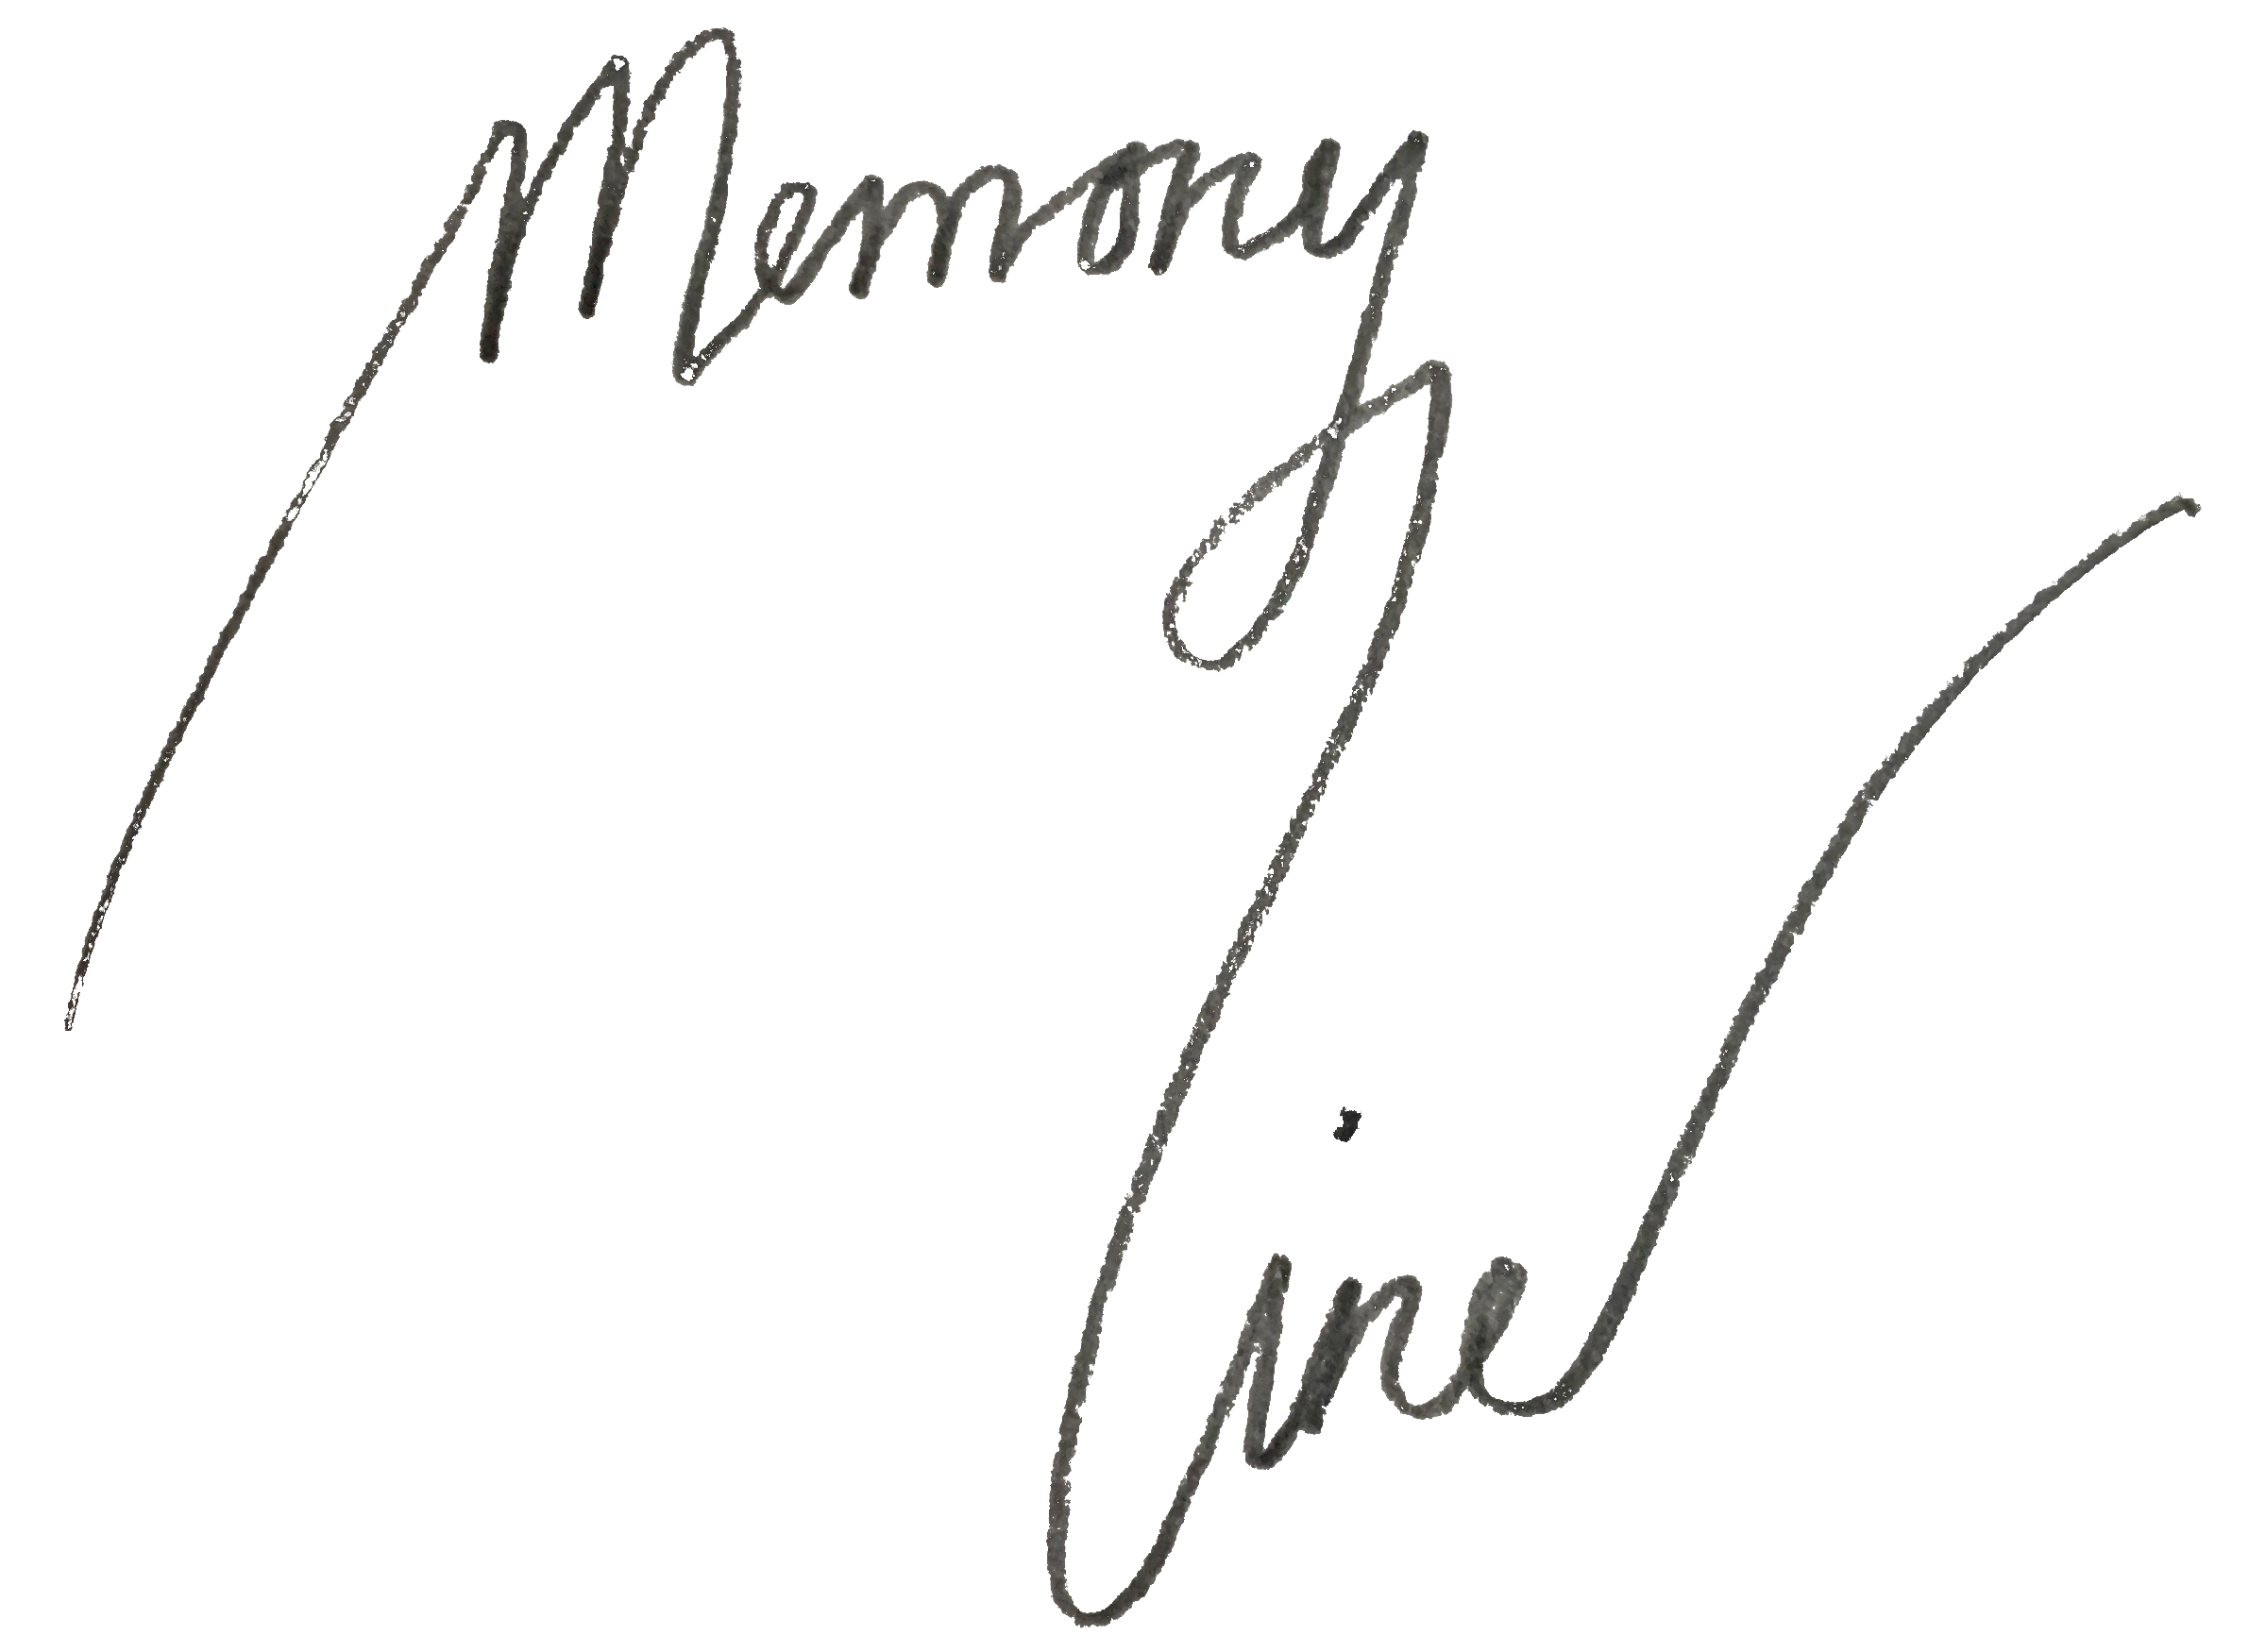 Memory
Line